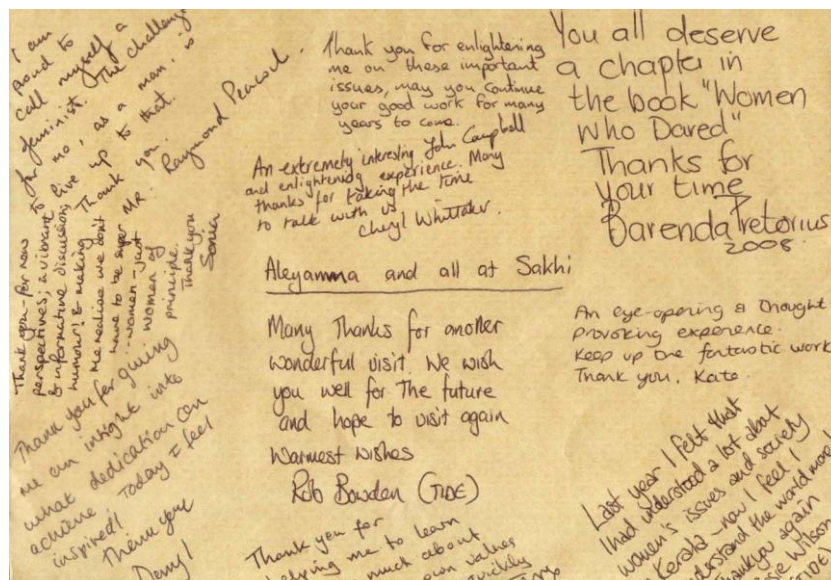 I am
proud to
call myself a
feminist. The challenge
for me, as a man, is
to live up to that.
Thank you.
MR. Raymond Peacock.
Thank you for enlightening
me on these important
issues, may you continue
your good work for many
years to come.
John Campbell
You all deserve
a chapter in
the book "Women
who Dared"
Thanks for
your time
Barenda Pretorius
2008.
An extremely interesting
and enlightening experience. Many
thanks for taking the time
to talk with us
Cheryl Whittaker.
Thank you - for new
perspectives; a vibrant
& informative discussion;
humour! & making
me realise we don't
have to be super
-women - just
women of
principle.
Thank you
Sonia
Aleyamma and all at Sakhi
Many Thanks for another
wonderful visit. We wish
you well for the future
and hope to visit again
Warmest wishes
Rob Bowden (TIDE)
An eye-opening & thought
provoking experience.
Keep up the fantastic work
Thank you. Kate.
Thank you for giving
me an insight into
what dedication can
achieve Today I feel
inspired!
Thank you
Last year I felt that
I had understood a lot about
women's issues and society
Kerala - now I feel I
understand the world more!
Thank you again
Wilson
(TIDE)
Thank you for
helping me to learn
much about
own values
quickly